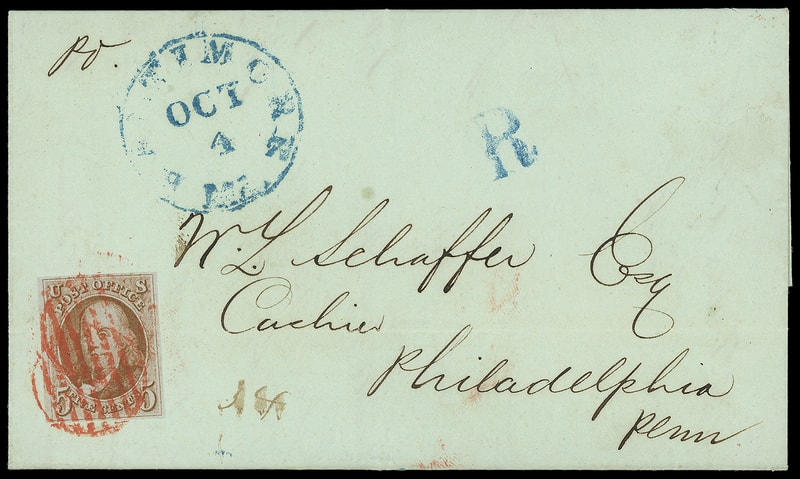 Pd.
BALTIMORE Md.
OCT
4
R
W. L. Schaffer Esq
Cashier
Philadelphia
Penn.
U S
POST OFFICE
FIVE CENTS
5 5